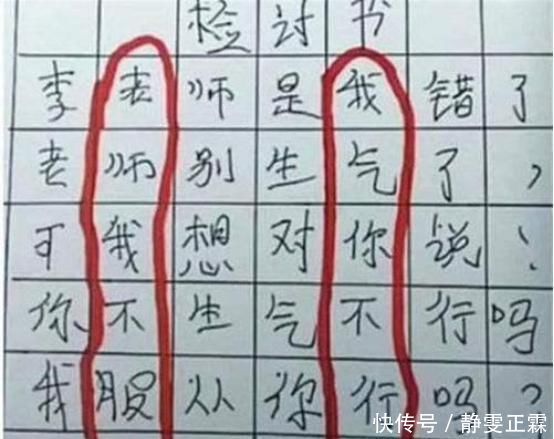 检讨书
李老师是我错了
老师别生气了，
可我想对你说：
你不生气不行吗
我服从你行吗？
快传号／静雯正霖